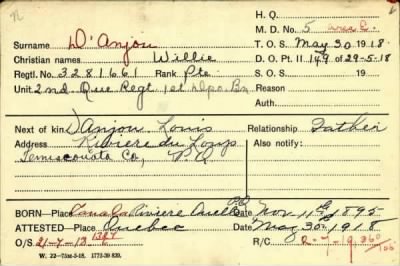 H. Q.
M. D. No. 5
Surname D'Anjou T. O. S. May 30 1918
Christian names Willie D. O. Pt. II 149 of 29-5-18
Regtl. No. 3281661 Rank Pte S. O. S. 19
Unit 2nd Que Regt 1st Dpo. Bn Reason
Auth.
Next of kin D'Anjou Louis Relationship Father
Address Riviere du Loup Also notify:
Temiscouata Co, P.Q
BORN—Place Canada Riviere Ouelle P.Q Date Nov 11th 1895
ATTESTED—Place Quebec Date May 30th 1918
O/S 21-7-18 R/C
W. 22—75M-5-18. 1772-39 839.